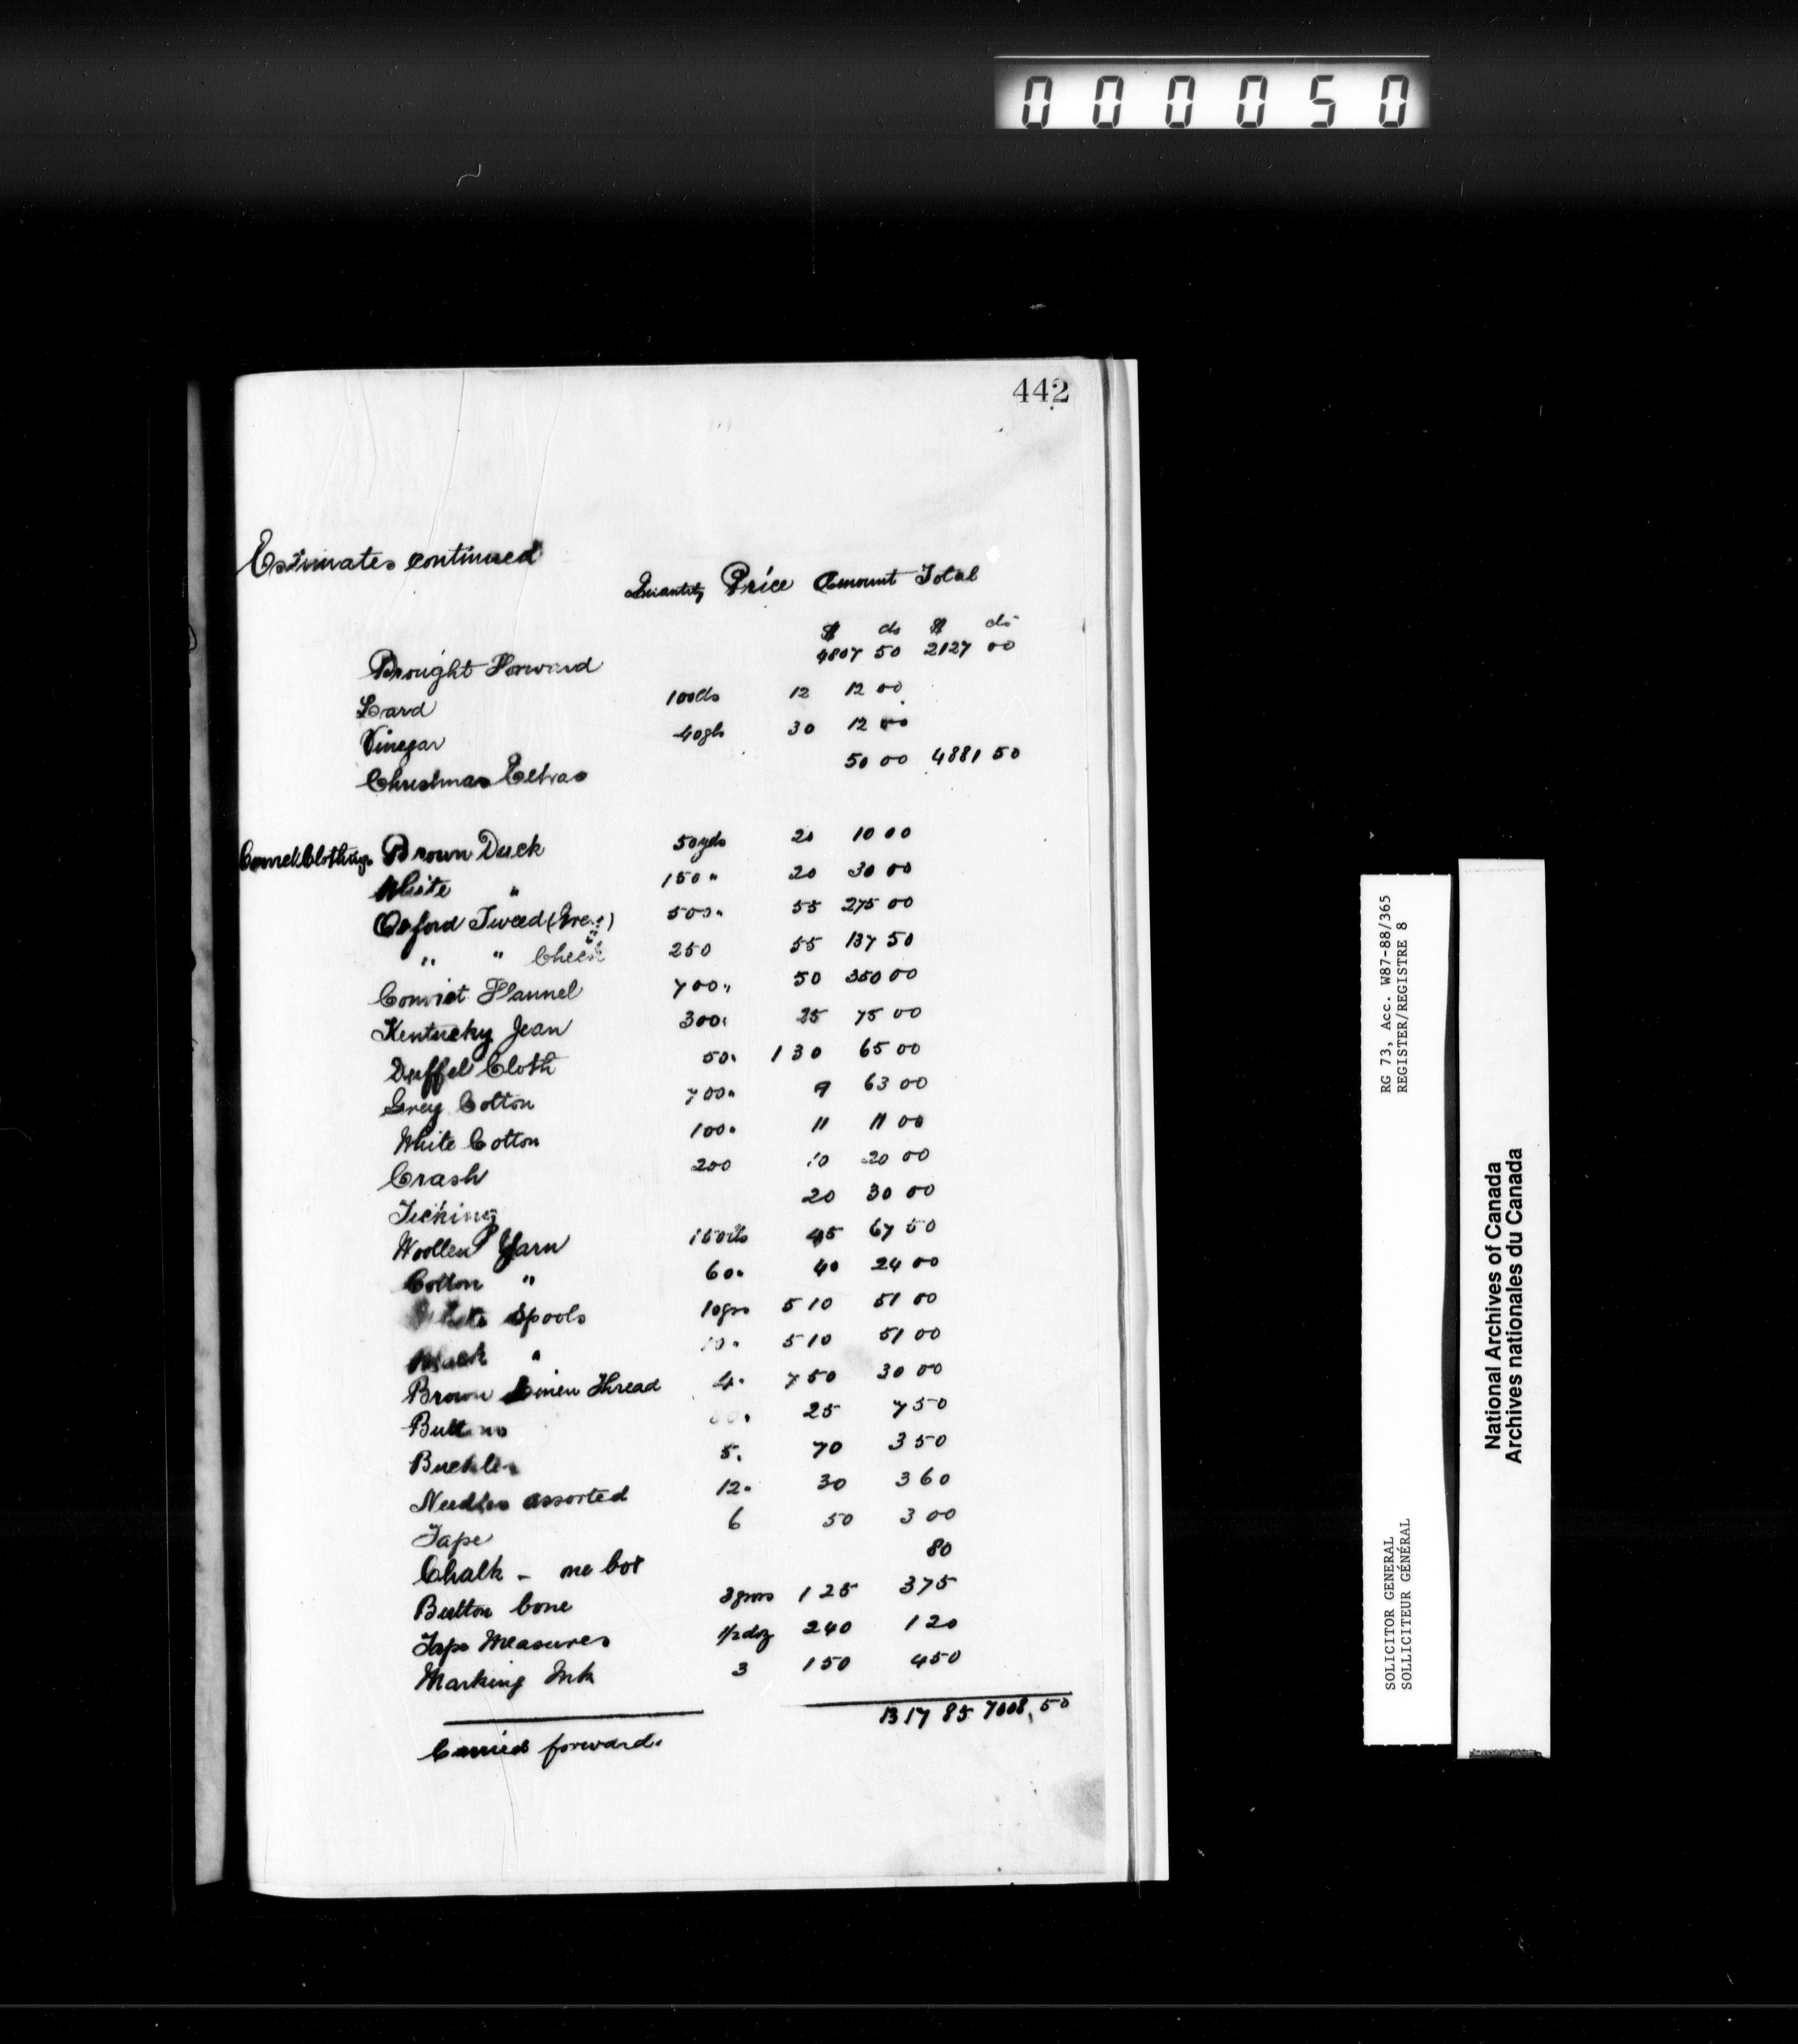 000050
442
Estimates continued
Quantity Price Amount Total
$ cts $ cts
Brought Forward 4807 50 2127 00
Lard 100lbs 12 12 00
Vinegar 40gls 30 12 00
Christmas Extras 50 00 4881 50
Convict Clothing Brown Duck 50yds 20 10 00
White " 150 " 20 30 00
Oxford Tweed (Grey) 500 " 55 275 00
" " Check 250 55 137 50
Convict Flannel 700 " 50 350 00
Kentucky Jean 300 " 25 75 00
Duffel Cloth 50 " 1 30 65 00
Grey Cotton 700 " 9 63 00
White Cotton 100 " 11 11 00
Crash 200 10 20 00
Ticking 20 30 00
Woollen Yarn 150lbs 45 67 50
Cotton " 60 " 40 24 00
White Spools 10gro 5 10 51 00
Black " 10 " 5 10 51 00
Brown Linen Thread 4 " 7 50 30 00
Buttons 25 7 50
Buckles 5 " 70 3 50
Needles assorted 12 " 30 3 60
Tape 6 50 3 00
Chalk - one box 80
Button bone 3gross 1 25 3 75
Tape Measures 1/2doz 2 40 1 20
Marking Ink 3 1 50 4 50
1317 85 7008,50
Carried forward.
RG 73, Acc. W87-88/365
REGISTER/REGISTRE 8
SOLICITOR GENERAL
SOLLICITEUR GÉNÉRAL
National Archives of Canada
Archives nationales du Canada